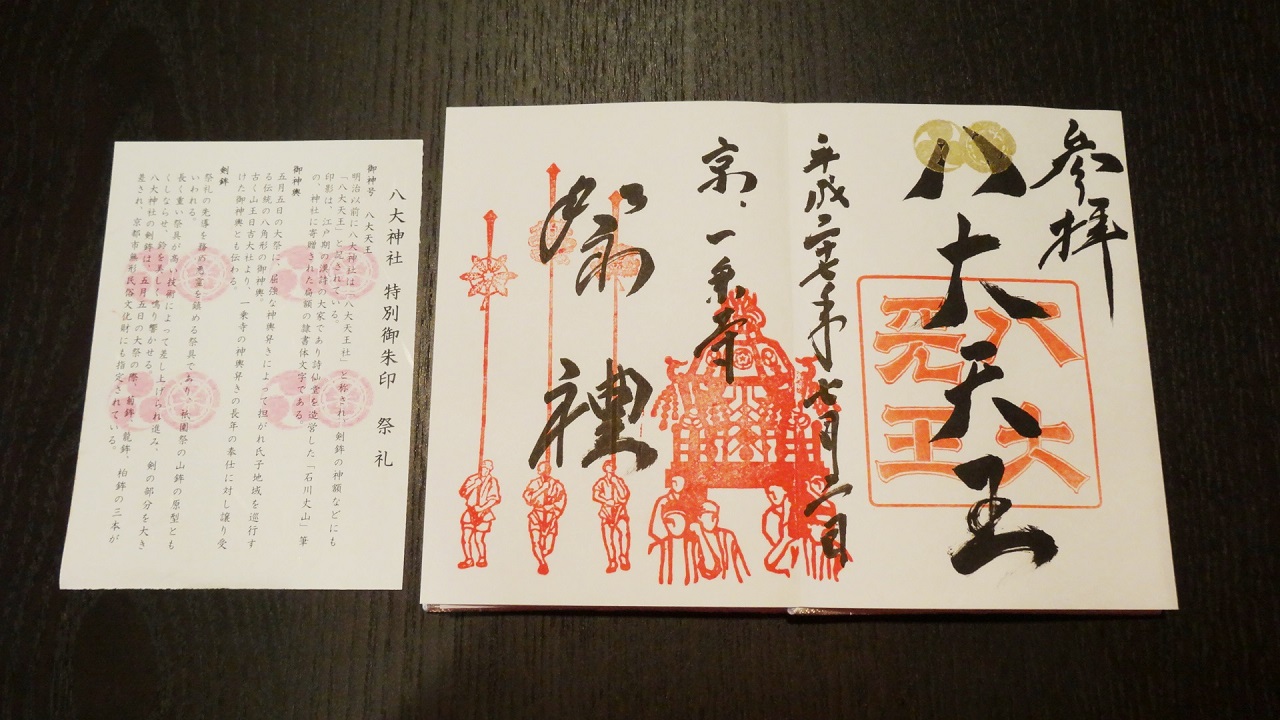 参拝
八大天王
八大
天王
平成二十七年七月二日
京、一乗寺
祭禮
八大神社 特別御朱印 祭礼
御神号 八大天王
明治以前に八大神社は「八大天王社」と称され、剣鉾の神額などにも
「八大天王」と記されている。
印影は、江戸期の漢詩の大家であり詩仙堂を造営した「石川丈山」筆
の、神社に寄贈された扁額の隷書体文字である。
御神輿
五月五日の大祭に、屈強な神輿舁きによって担がれ氏子地域を巡行す
る伝統の八角形の御神輿。
古く山王日吉大社より、一乗寺の神輿舁きの長年の奉仕に対し譲り受
けた御神輿とも伝わる。
剣鉾
祭礼の先導を務め悪霊を鎮める祭具であり、祇園祭の山鉾の原型とも
いわれる。
長く重い祭具が高い技術によって差し上げられ進み、剣の部分を大き
くしならせ、鈴を美しく鳴り響かせる。
八大神社の剣鉾は、五月五日の大祭の際、菊鉾、龍鉾、柏鉾の三本が
差され、京都市無形民俗文化財にも指定されている。